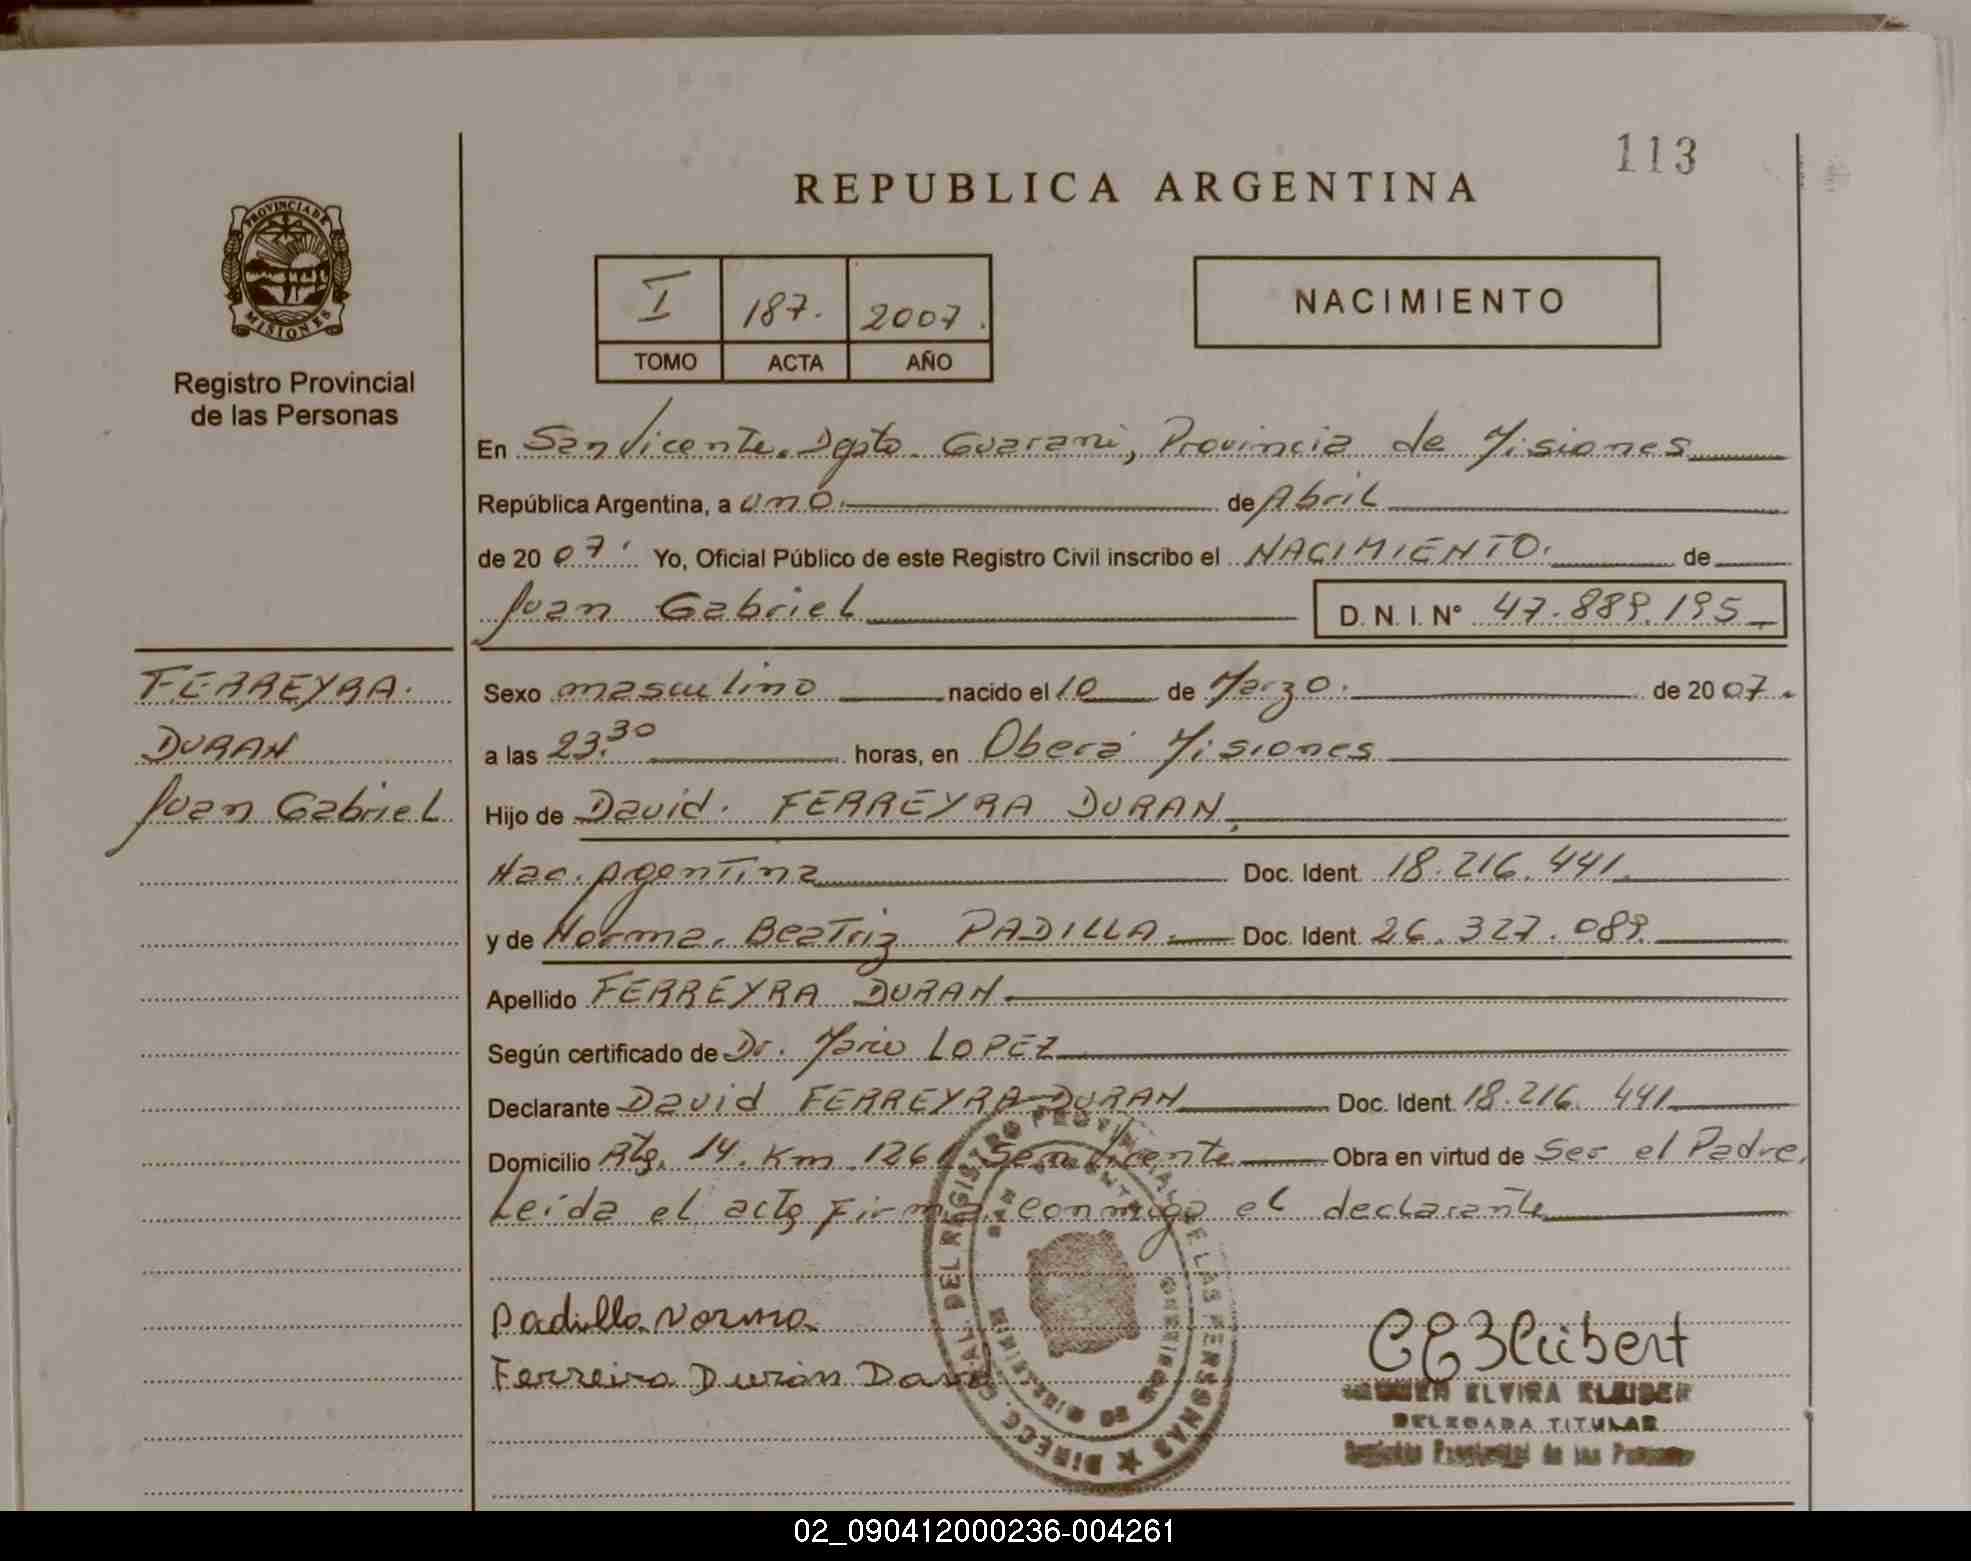 113
REPUBLICA ARGENTINA
PROVINCIA DE
MISIONES
Registro Provincial
de las Personas
I 187. 2007.
TOMO ACTA AÑO
NACIMIENTO
En San Vicente. Dpto. Guarani, Provincia de Misiones
República Argentina, a uno. de Abril
de 2007. Yo, Oficial Público de este Registro Civil inscribo el NACIMIENTO. de
Juan Gabriel D. N. I. N° 47.889.195
FERREYRA.
DURAN
Juan Gabriel
Sexo masculino nacido el 10 de Marzo. de 2007.
a las 23.30 horas, en Oberá Misiones
Hijo de David. FERREYRA DURAN.
Nac. Argentina Doc. Ident. 18.216.441.
y de Norma. Beatriz PADILLA. Doc. Ident. 26.327.089.
Apellido FERREYRA DURAN.
Según certificado de Dr. Mario LOPEZ
Declarante David FERREYRA DURAN Doc. Ident. 18.216.441
Domicilio Rta. 14. Km. 1261 San Vicente Obra en virtud de Ser el Padre.
Leída el acta firma conmigo el declarante
Padilla Norma
Ferreira Durán David
DIREC. GRAL. DEL REGISTRO PROVINCIAL DE LAS PERSONAS
ELVIRA
DELEGADA TITULAR
Registro Provincial de las Personas
02_090412000236-004261